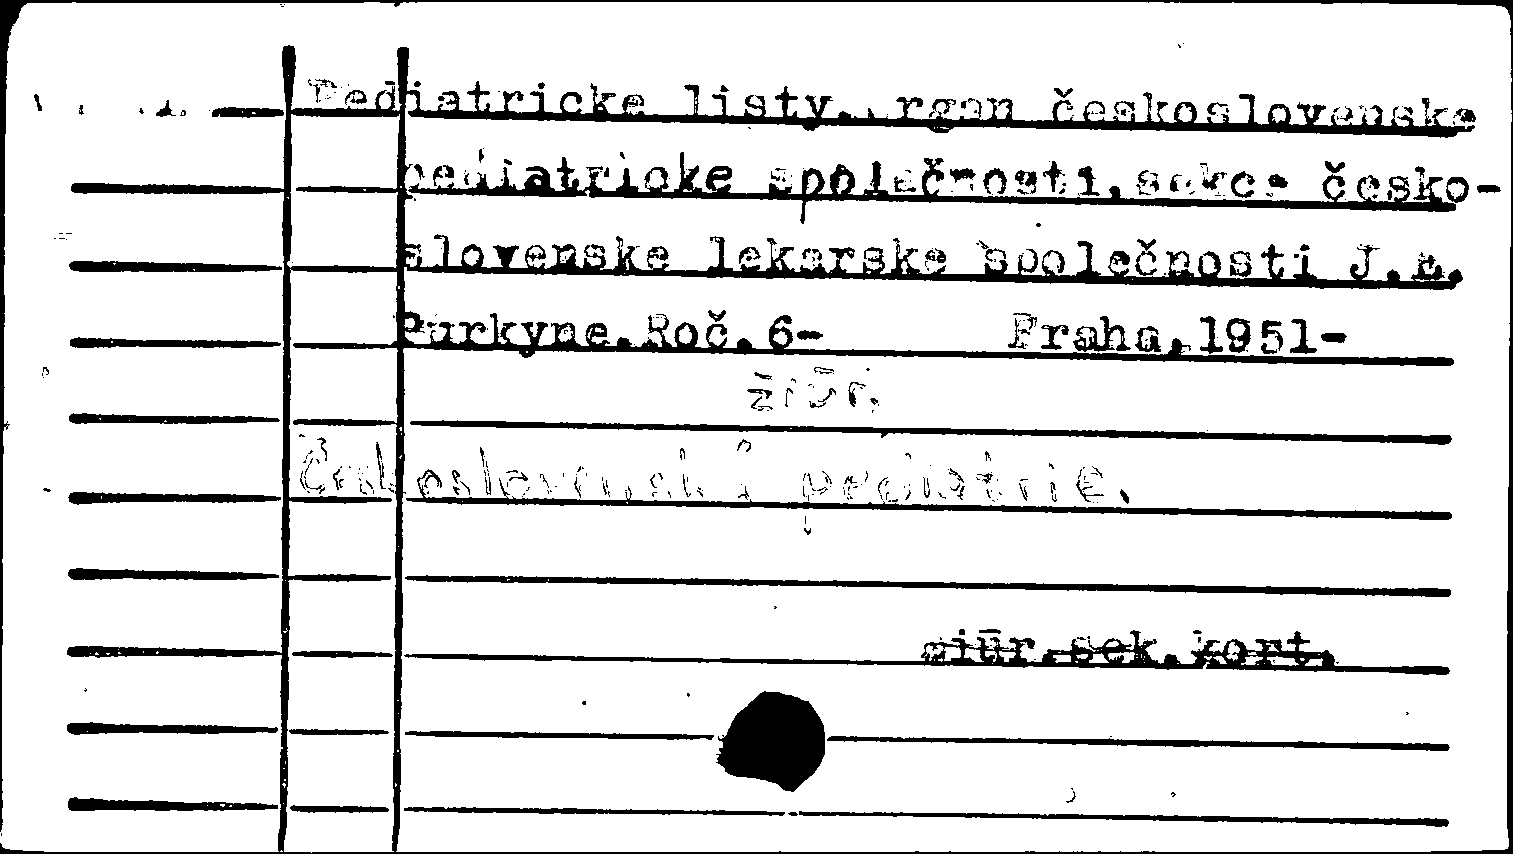 Pediatricke listy. rgan československe
pediatricke společnosti.sekce česko-
slovenske lekarske společnosti J.E.
Purkyne.Roč.6- Praha.1951-
žiūr.
Československa pediatrie.
žiūr.sek.kort.